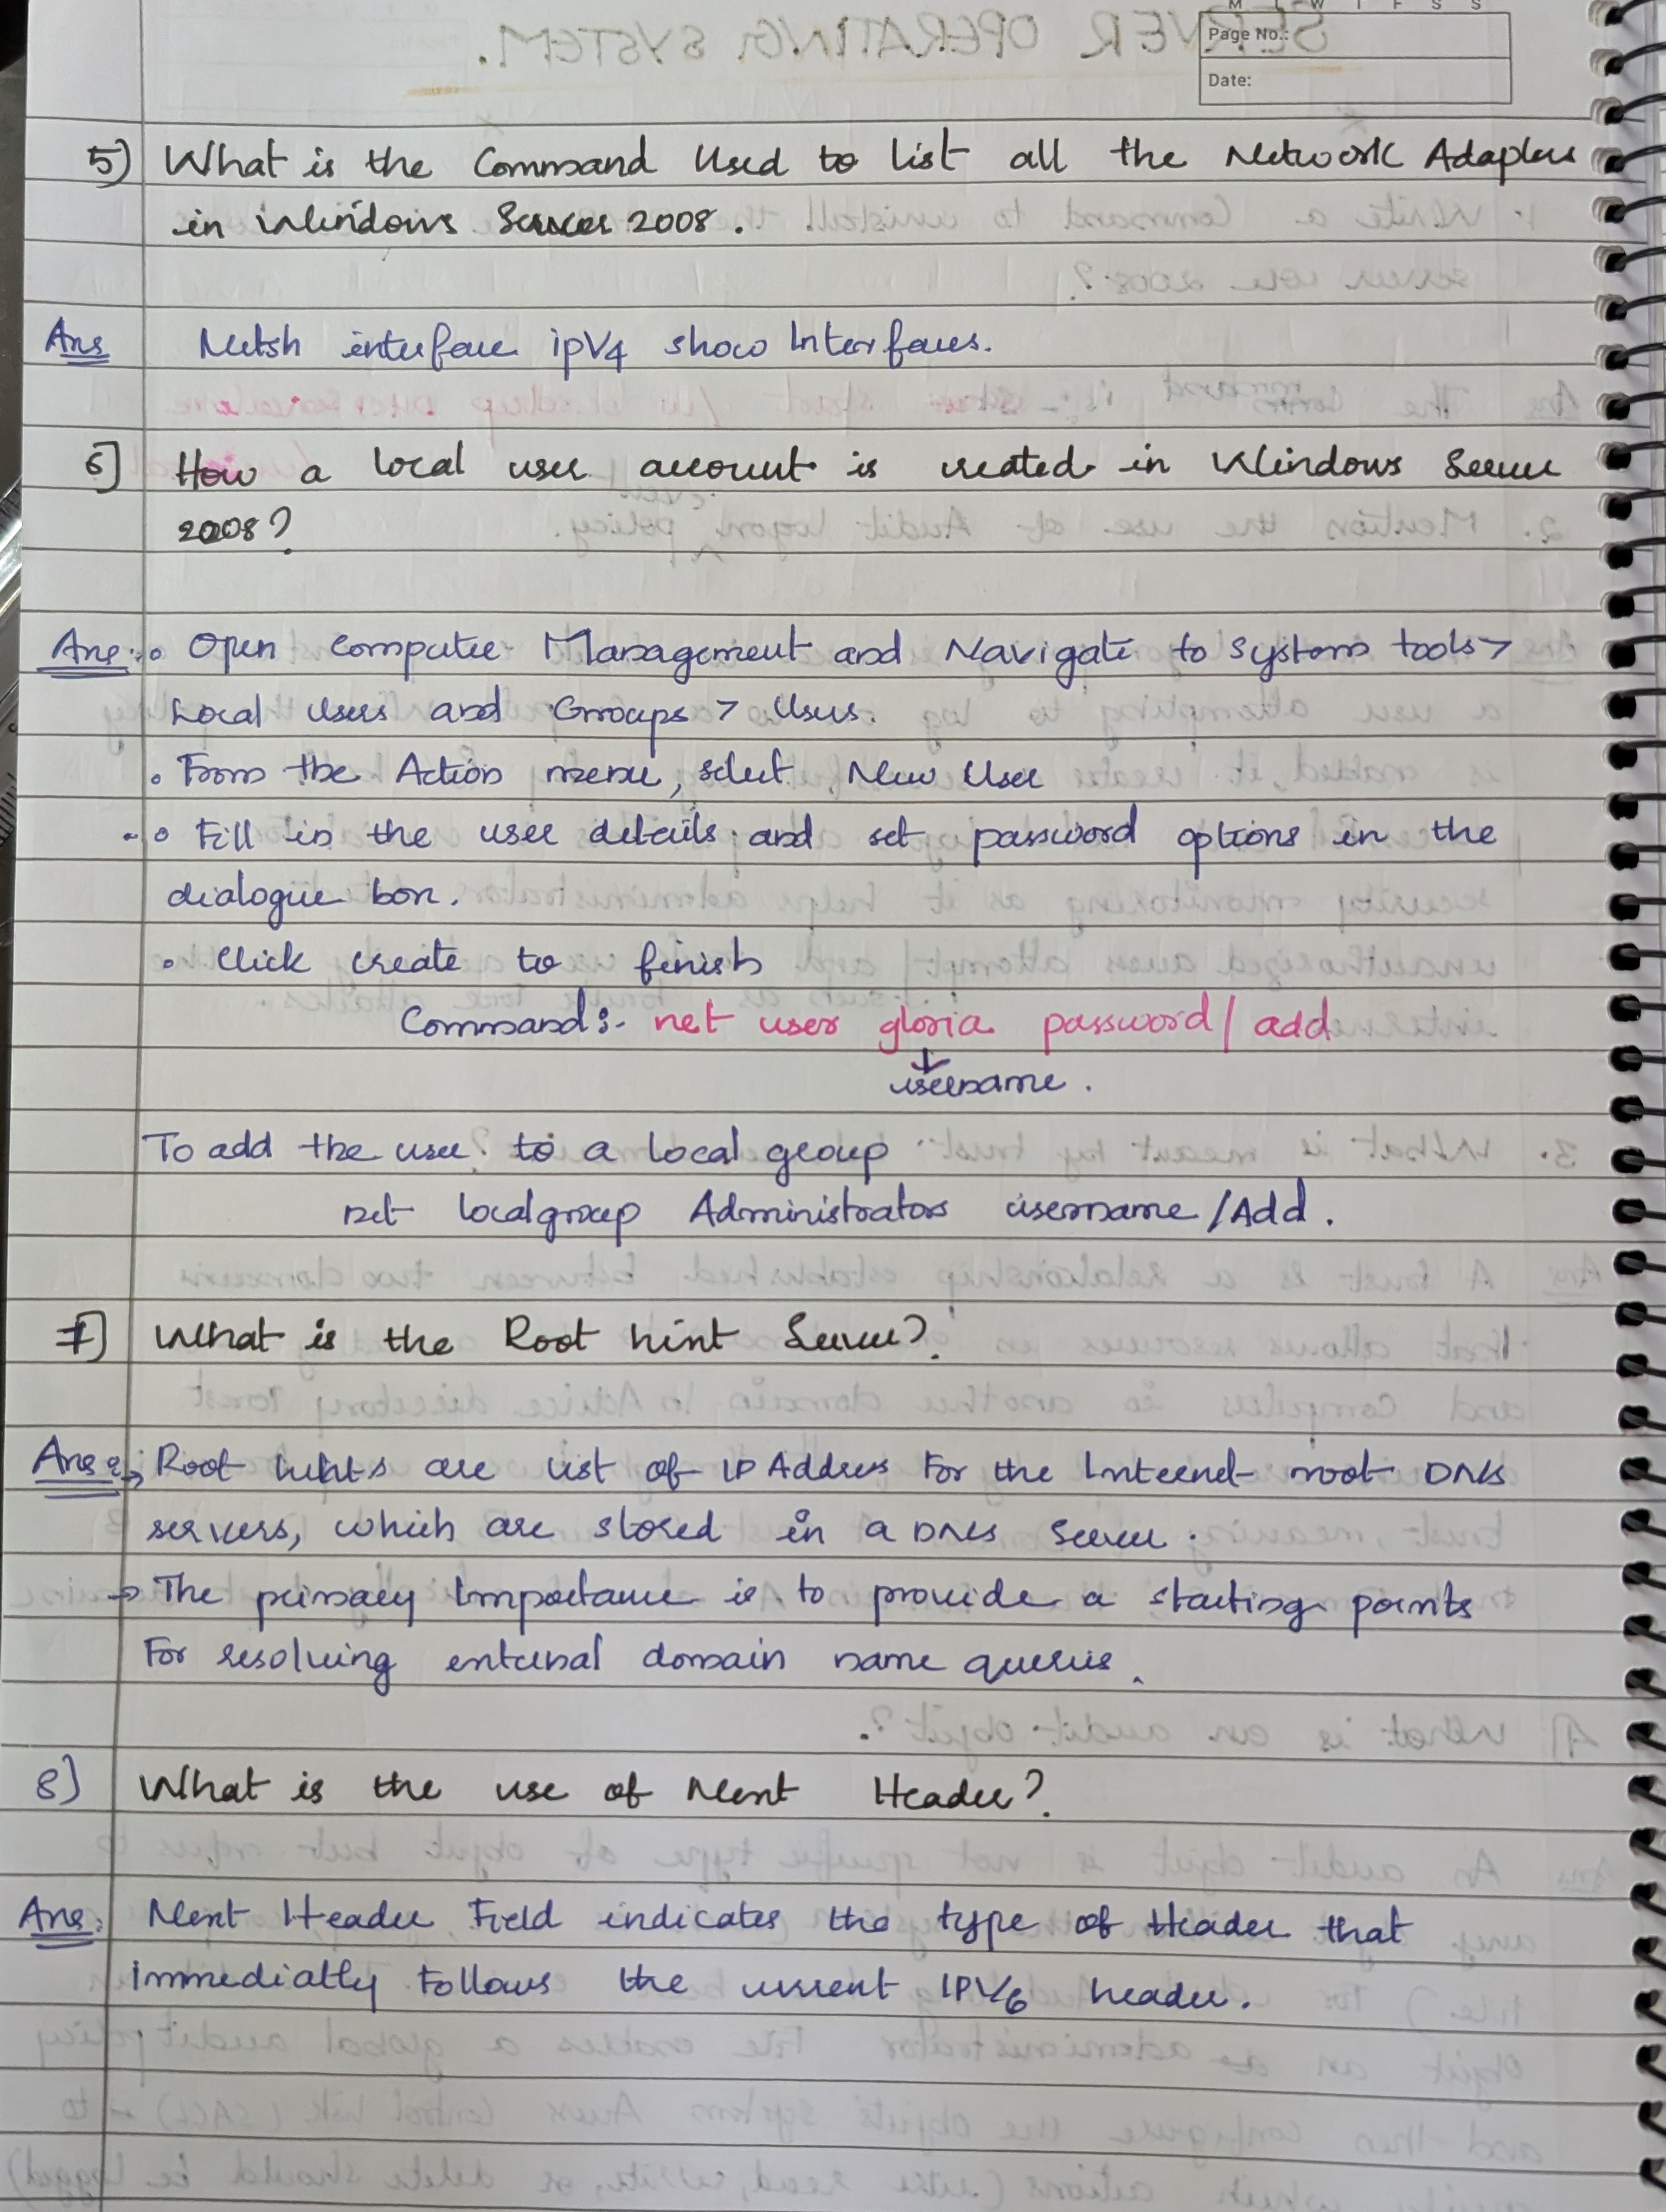 M T W T F S S
Page No.:
Date:
5) What is the Command Used to list all the Network Adapters
in Windows Server 2008.
Ans Netsh interface ipV4 show Interfaces.
6] How a local user account is created in Windows Server
2008?
Ans:- Open Computer Management and Navigate to System tools >
Local Users and Groups > Users.
• From the Action menu, select New User
• Fill in the user details and set password options in the
dialogue box.
• Click create to finish
Command:- net user gloria password/add
↓
username.
To add the user to a local group
net localgroup Administrators username /Add.
7] What is the Root hint Server?
Ans: → Root hints are list of IP Address For the Internet root DNS
servers, which are stored in a DNS Server.
→ The primary Importance is to provide a starting points
For resolving external domain name queries.
8) What is the use of Next Header?
Ans: Next Header Field indicates the type of Header that
immediatly Follows the current IPV6 header.